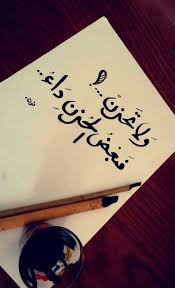 ولا تحزنْ...!
فبَعضُ الحُزنِ دَاءُ..